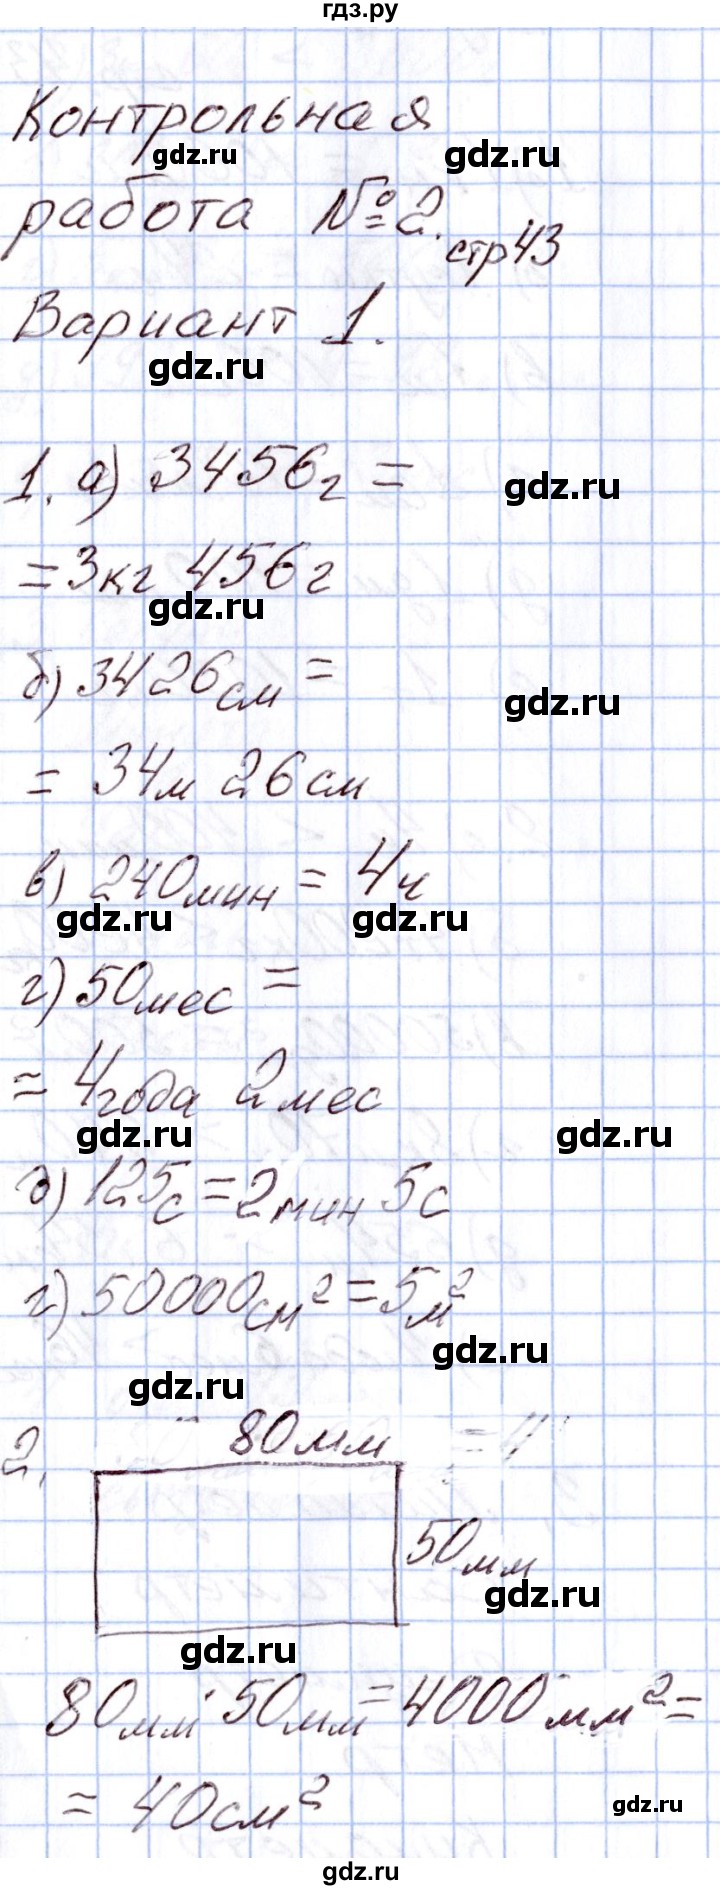 гдз.ру
Контрольная
gdz.ru gdz.ru
работа №2. стр43
Вариант 1.
gdz.ru
1. а) 3456г =
gdz.ru
= 3кг 456г
gdz.ru
б) 3426см =
gdz.ru
= 34м 26см
в) 240мин = 4ч
gdz.ru gdz.ru
г) 50мес =
= 4года 2мес
gdz.ru gdz.ru
д) 125с = 2мин 5с
г) 50000см² = 5м²
gdz.ru
gdz.ru
2. 80мм
50мм
gdz.ru
gdz.ru
80мм · 50мм = 4000мм² =
= 40см²
gdz.ru
gdz.ru